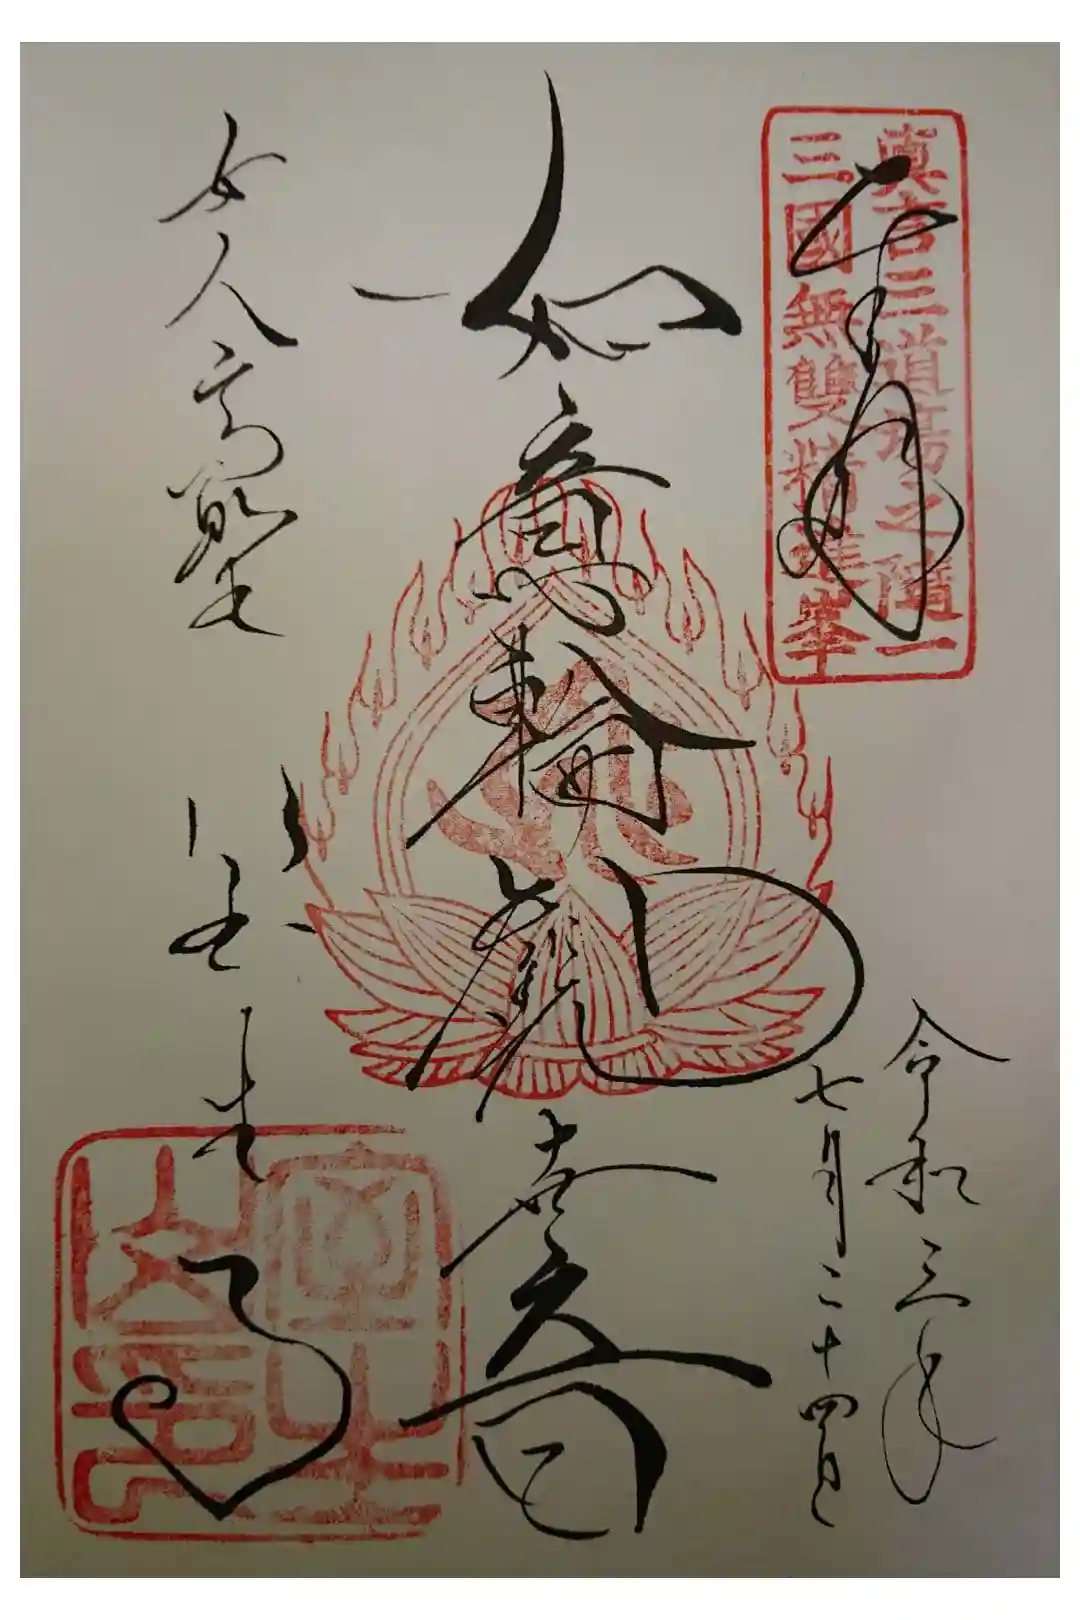 眞言三道場之隨一
三國無雙精進峯
奉拝
令和三年
七月二十四日
如意輪観世音
女人高野
室生寺